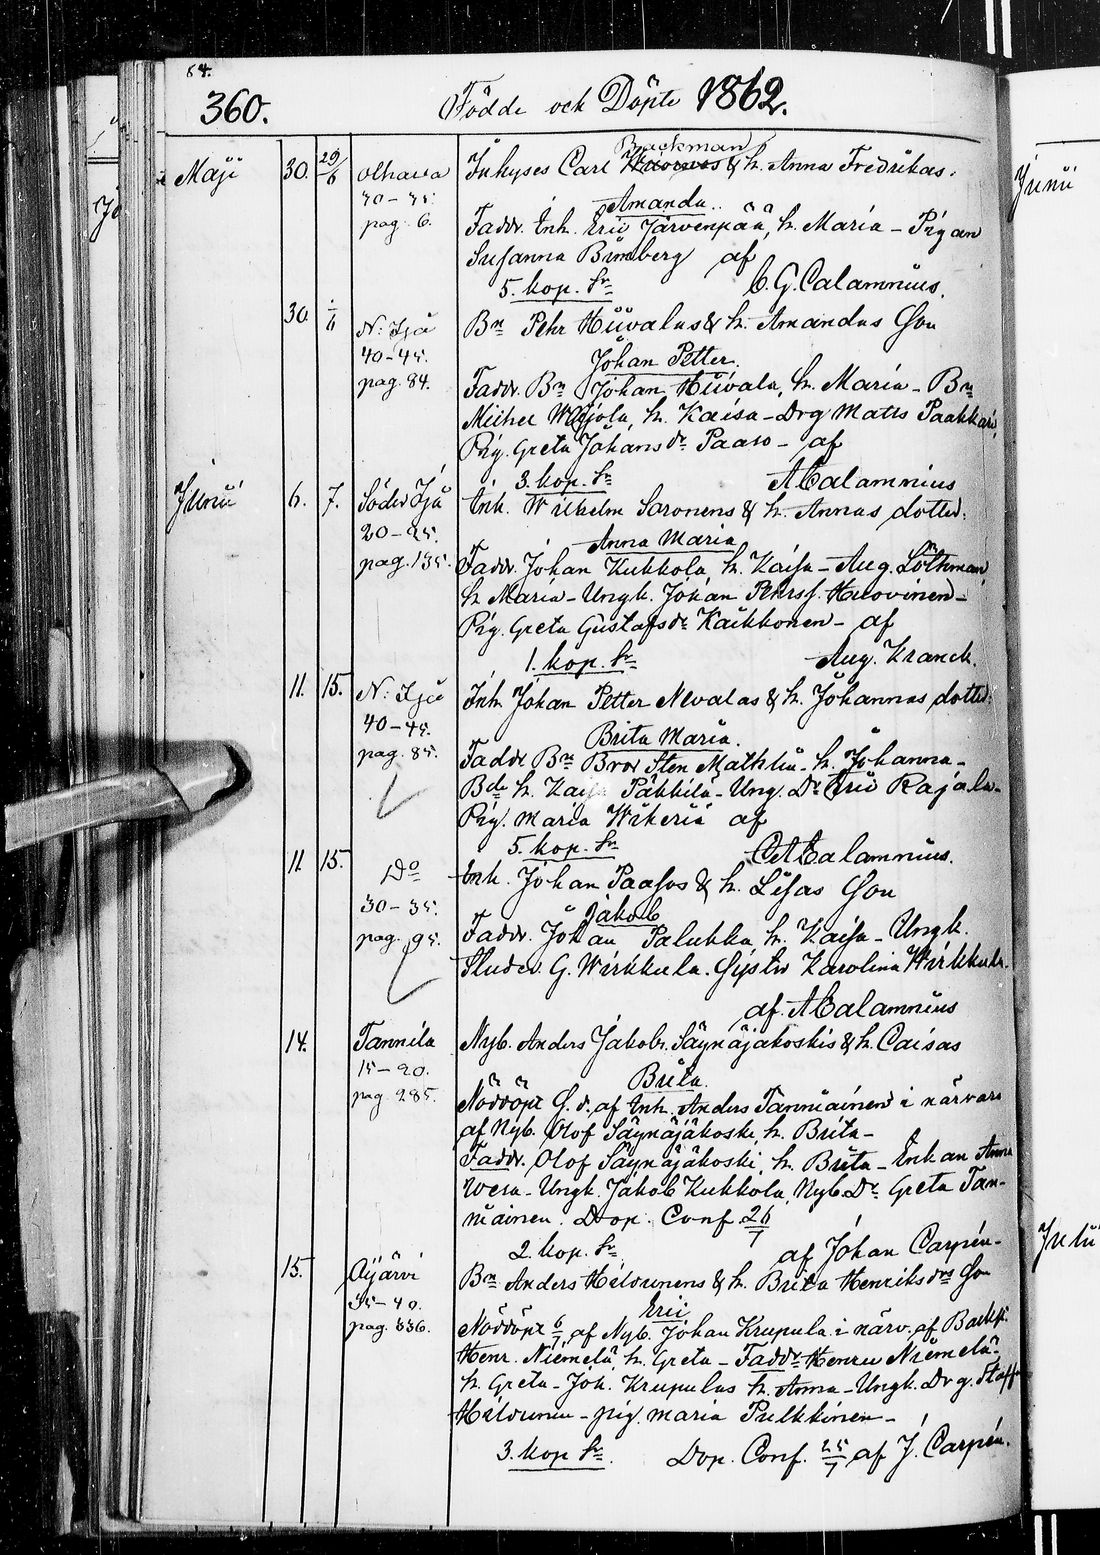 64.
360. Födde och Döpte 1862.
Backman
Maji 30. 29/6 Olhava Inhyses Carl & h. Anna Fredrikas.
30-35. Amanda.
pag. 6. Fadd. Inh. Eric Järvenpää, h. Maria - Pigan
Susanna Brimberg af
5. kop. Sr C. G. Calamnius.
30 1/6 N. Ijå Bn Pehr Hiivalas & h. Amandas Son
40-45. Johan Petter.
pag. 84. Fadd. Bn Johan Hiivala, h. Maria - Bn
Michel h. Kaisa - Drg Matts Paakkari,
Pig. Greta Johansdr Paaso - af
3. kop. Sr A Calamnius
Junii 6. 7. Söder Ijå Inh. Wilhelm Saronens & h. Annas dotter.
20-25. Anna Maria
pag. 135. Fadd. Johan Kukkola, h. Kaisa - Aug. Löthman,
h. Maria - Ungk. Johan Pehrss. Huovinen -
Pig. Greta Gustafsdr Kaikkonen - af
1. kop. Sr Aug. Kranck.
11. 15. N. Ijå Inh. Johan Petter Nevalas & h. Johannas dotter.
40-45. Brita Maria.
pag. 85. Fadd. Bn Bror Sten Mathlin - h. Johanna -
Bde h. Kaisa Päkkilä - Ung. Dr Eric Rajala -
Pig. Maria af
5. kop. Sr A Calamnius.
11 15. Do Inh. Johan Paasos & h. Lisas Son
30-35. Jakob
pag. 95. Fadd. Johan Palukka, h. Kaisa - Ungk.
Studer. G. Wirkkula. Syster Karolina Wirkkula.
af A Calamnius
14. Tannila Nyb. Anders Jakobs. Säynäjäkoskis & h. Caisas
15-20. Brita.
pag. 285. Nöddöpt S. d. af Inh. Anders Tanniainen i närvaro
af Nyb. Olof Säynäjäkoski, h. Brita -
Fadd. Olof Säynäjäkoski, h. Brita - Enkan Anna
Wesa - Ungk. Jakob Kukkola, Nyb. Dr Greta Tan-
niainen. Dop. Conf 26/7
2. kop. Sr af Johan Carpén -
15. Oijärvi Bn Anders Hildunens & h. Brita Henriksdrs Son
35-40. Eric
pag. 336. Nöddöpt 6/7 af Nyb. Johan Krupula i närv. af
Henr. Niemelä, h. Greta - Fadd. Henric Niemelä -
h. Greta - Joh. Krupulas h. Anna - Ungk. Drg. Staff.
Hildunen - pig. Maria Pulkkinen -
3. kop Sr. Dop. Conf. 25/7 af J. Carpén.
Junii
Julii